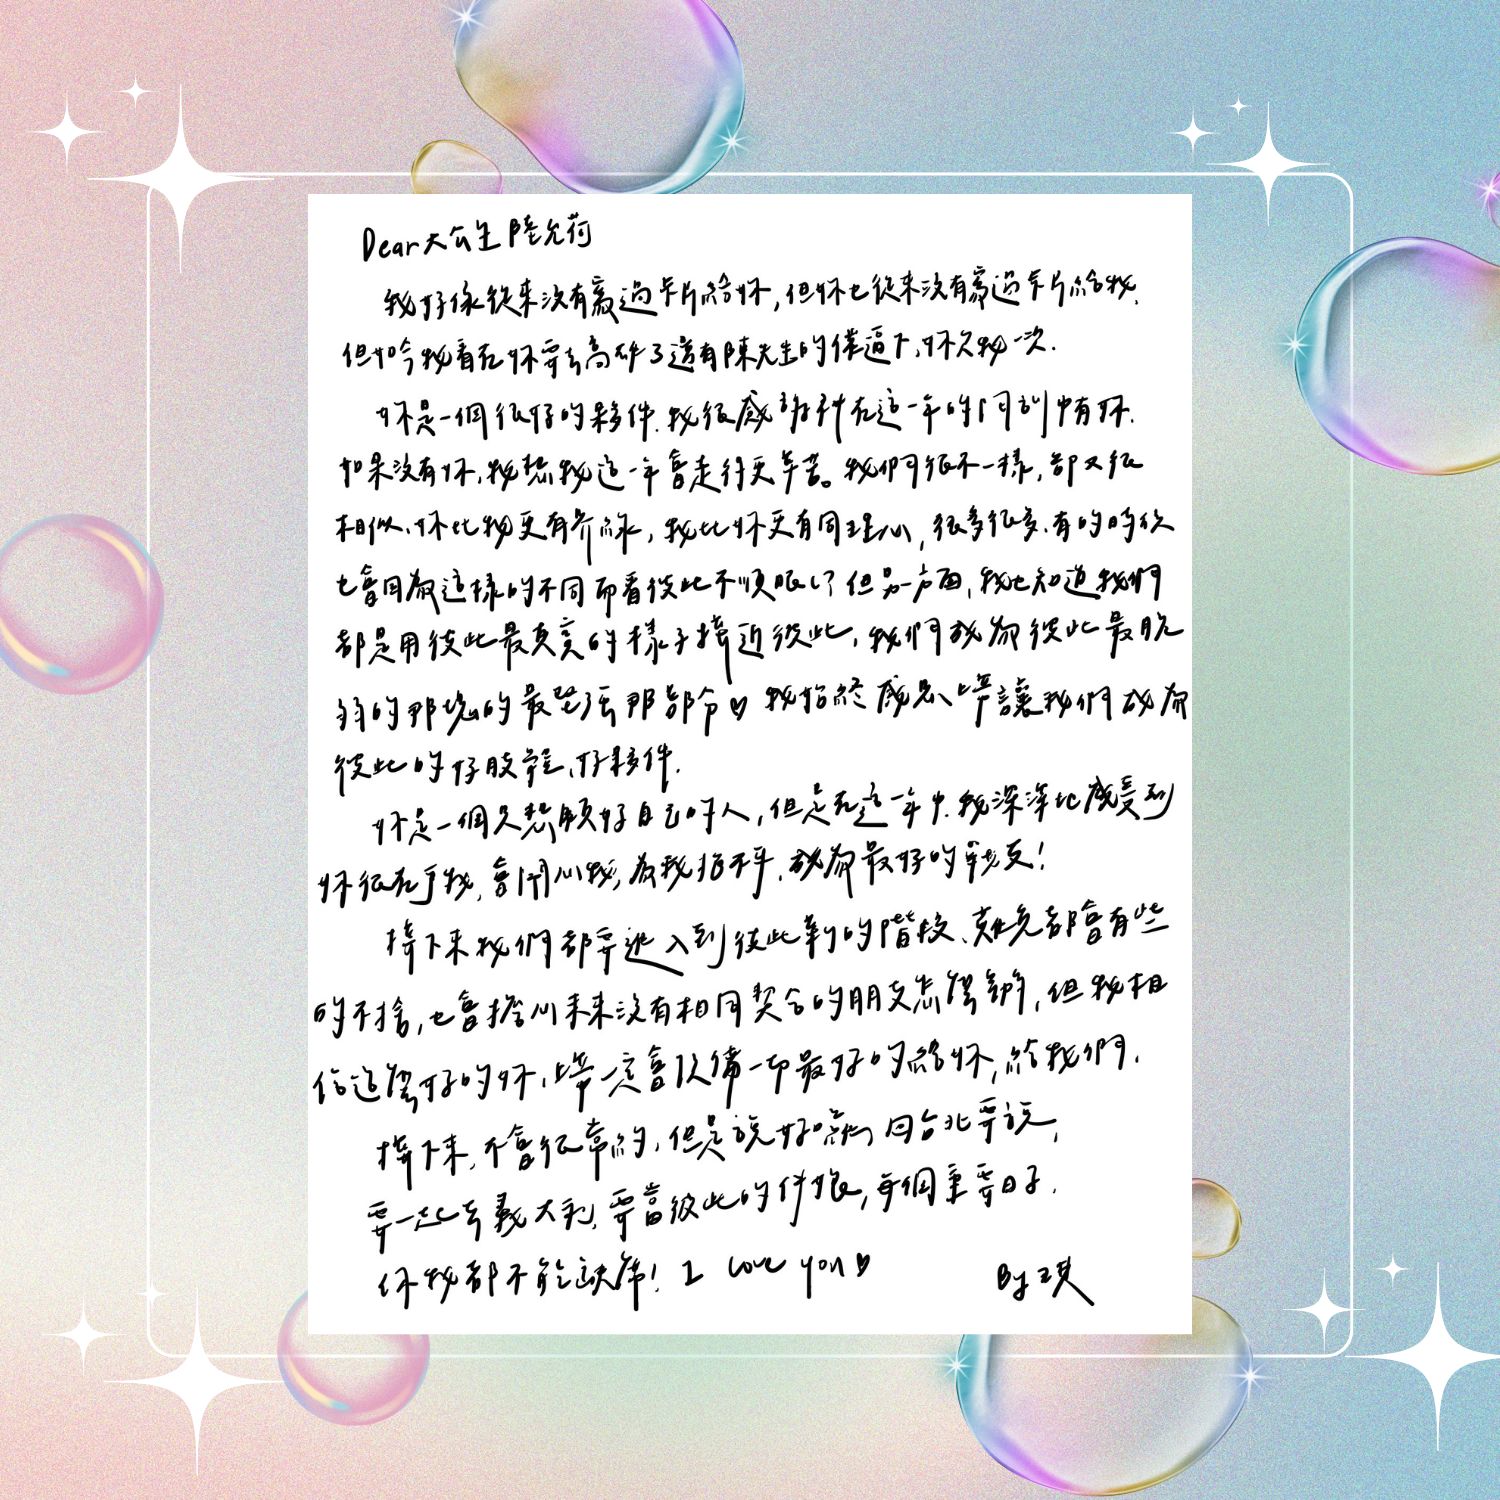 Dear大公生 陸允荷
我好像從來沒有寫過卡片給妳,但妳也從來沒有寫過卡片給我.
但如今我看在妳要去高雄了還有陳先生的催逼下,妳欠我一次.
妳是一個很好的夥伴.我很感謝神在這一年的同工中有妳.
如果沒有妳,我想我這一年會走得更辛苦。我們很不一樣,卻又很
相似、妳比我更有界線,我比妳更有同理心,很多很多.有的時候
也會因為這樣的不同而看彼此不順眼 但另一方面,我也知道我們
都是用彼此最真實的樣子接近彼此,我們成為彼此最脆
弱的那塊的最堅強那部分♡ 我始終感恩上帝讓我們成為
彼此的好肢體、好夥伴.
妳是一個只想顧好自己的人,但是在這一年中.我深深地感受到
妳很在乎我,會關心我,為我抱不平,成為最好的戰友!
接下來我們都要進入到彼此新的階段、難免都會有些
的不捨,也會擔心未來沒有相同契合的朋友怎麼辦,但我相
信這麼好的妳,上帝一定會預備一切最好的給妳,給我們.
接下來,不會很常約,但是說好 回台北要說,
要一起去義大利,要當彼此的伴娘,每個重要日子.
你我都不能缺席! I love you♡ By 琪